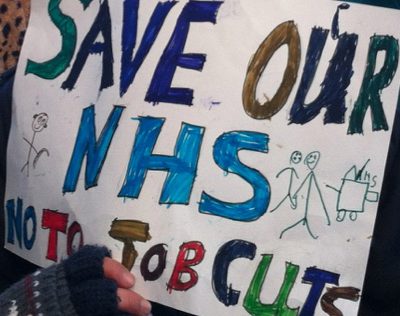 SAVE OUR
NHS
NHS
NO TO JOB CUTS